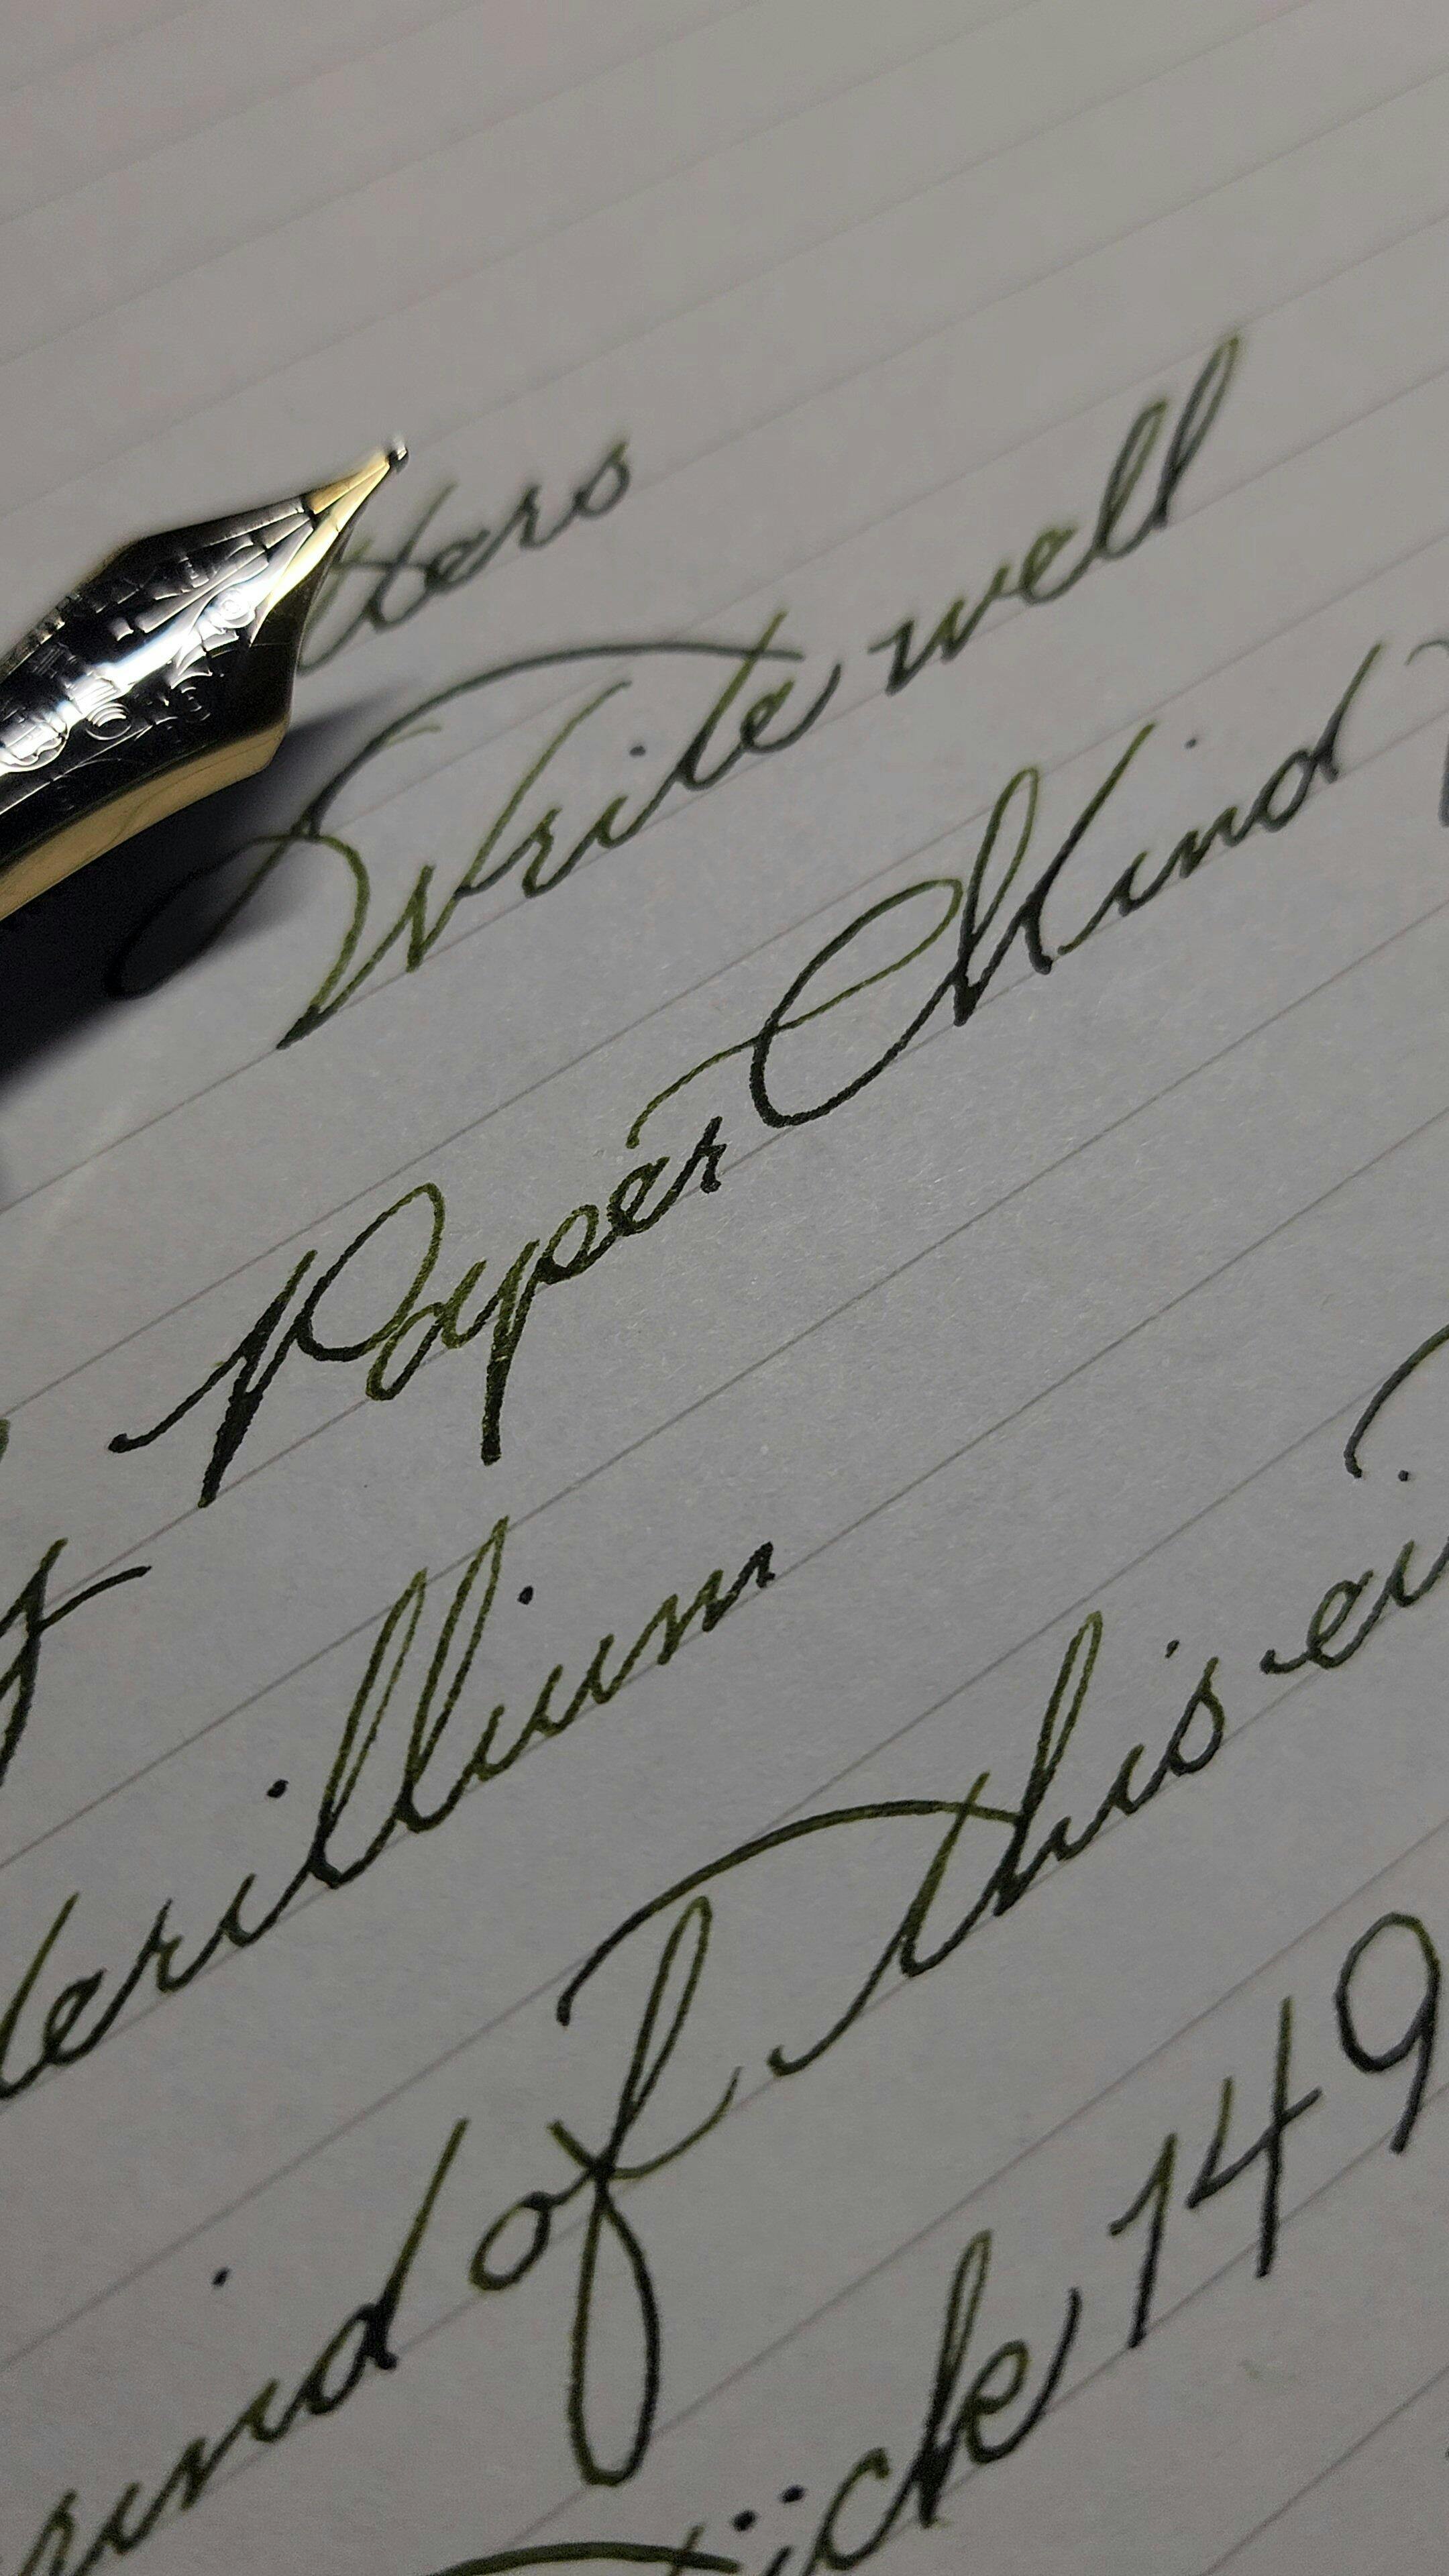 tters
Write well
Paper Mind
terillium
rind of this
ück 149